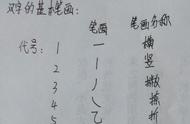 汉字的基本笔画
笔画 笔画名称
代号: 1 一 横
2 丨 竖
3 丿 撇
4 ㇏ 捺
5 乙 折